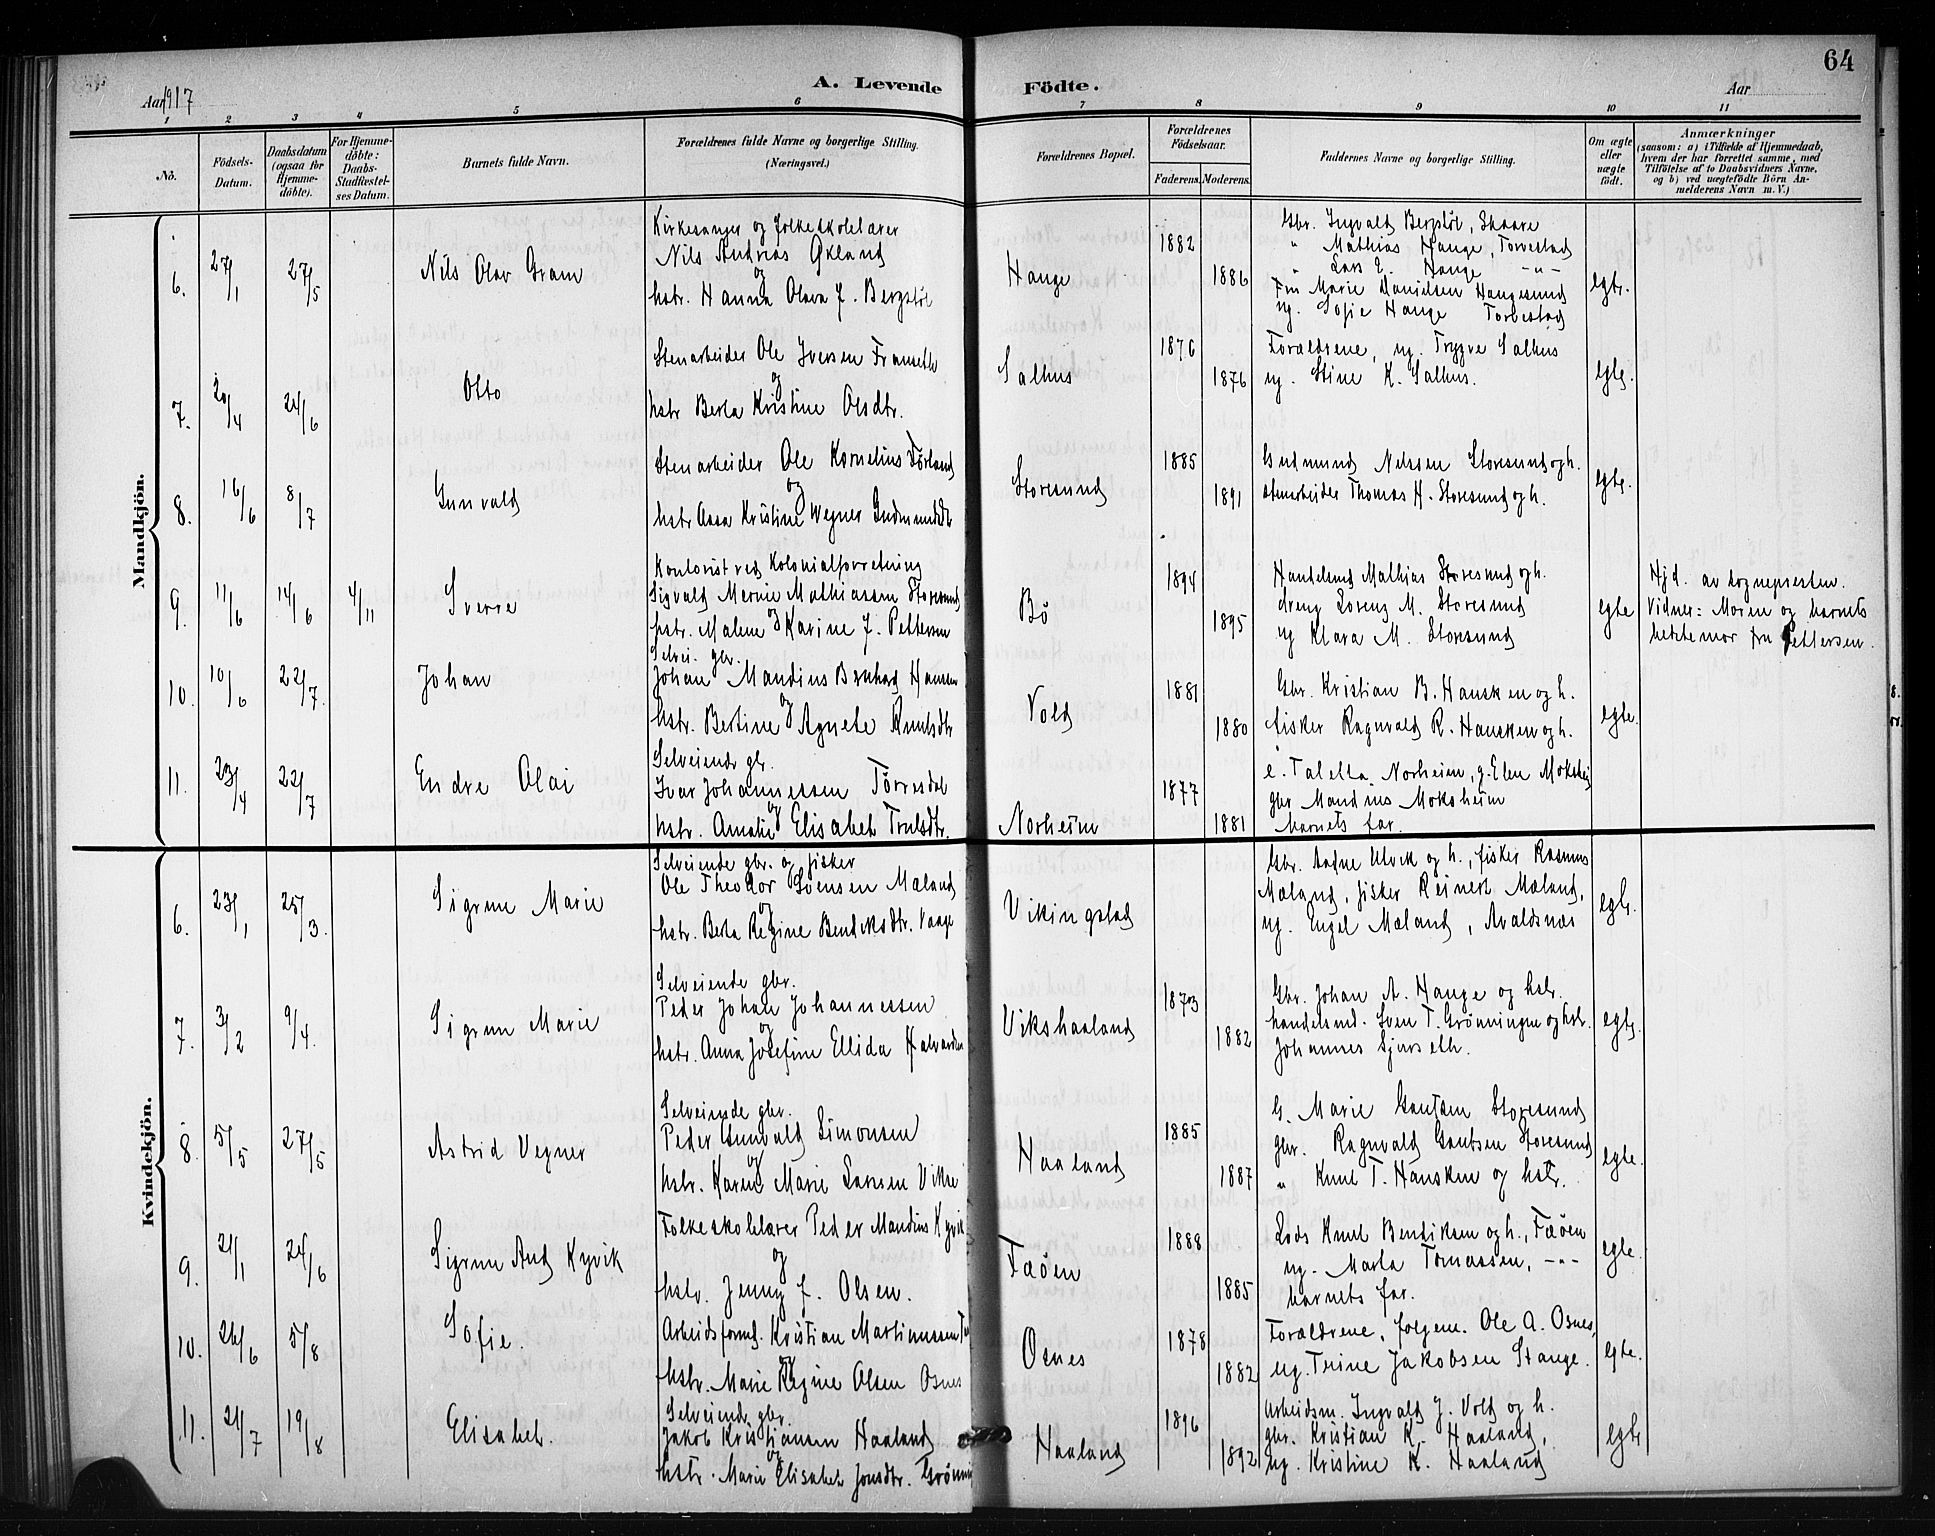 64
A. Levende Födte.
Aar 1917
Aar
1 2 3 4 5 6 7 8 9 10 11
No.
Födsels-Datum.
Daabsdatum (ogsaa for Hjemme-döbte).
For Hjemme-döbte: Daabs-Stadfæstel-ses Datum.
Barnets fulde Navn.
Forældrenes fulde Navne og borgerlige Stilling.
(Næringsvei.)
Forældrenes Bopæl.
Forældrenes Födselsaar.
Faderens. Moderens.
Faddernes Navne og borgerlige Stilling.
Om ægte eller uægte födt.
Anmærkninger
(saasom: a) i Tilfælde af Hjemmedaab, hvem der har forrettet samme, med Tilföielse af to Daabsvidners Navne, og b) ved uægtefödte Börn An-melderens Navn m. V.)
Mandkjön.
6. 27/1 27/5 Nils Olav Gram
Kirkesanger og folkeskolelærer
Nils Andreas Økland
og
hstr. Hanna Olava J. Bergstøl
Hauge 1882 1886
Gbr. Ingvald Bergstøl, Skaare
" Mathias Hauge, Torvestad
" Lars E. Hauge -"-
Fru Marie Danielsen Haugesund
ug. Sofie Hauge Torvestad
egte.
7. 2/4 24/6 Otto
Stenarbeider Ole Iversen
og
hstr Berta Kristine Olsdtr.
Salhus 1876 1876
Forældrene, ug. Trygve Salhus
ug. Stine K. Salhus.
egte.
8. 16/6 8/7 Gunvald
Stenarbeider Ole Kornelius Førland
og
hstr Aasa Kristine Wegner Gudmundsdtr
Storesund 1885 1891
Gudmund Nilssen Storesund og h.
stenarbeider Thomas H. Storesund og h.
egte.
9. 11/6 14/6 4/11 Sverre
Kontorist ved Kolonialforretning
Sigvald Mernie Mathiassen Storesund
og
hstr. Malene Karine J. Pettersen
Bø 1894 1895
Handelsmd Mathias Storesund og h.
dreng Lorenz M. Storesund
ug Klara M. Storesund
egte
Hjd. av sognepresten.
Vidner: Moren og barnets
bestemor fru Pettersen.
10. 10/6 22/7. Johan
Selvei. gbr.
Johan Mandius Bernhard Hansen
og
hstr. Bertine Agnete Knutsdtr
Vold 1881 1880
Gbr. Kristian B. Hausken og h.
fisker Ragnvald R. Hausken og h.
egte.
11. 23/4 22/7 Endre Olai
Selveiende gbr.
Ivar Johannessen Tørresdal
og
hstr. Amalie Elisabet Trulsdtr.
Norheim 1877 1881
e. Taletta Norheim, g. Elen Moksheim
gbr Mandius Moksheim
barnets far.
Kvindekjön.
6. 23/1 25/3. Sigrun Marie
Selveiende gbr. og fisker
Ole Theodor Svensen Mæland
og
hstr. Berta Regine Bendiksdtr. Vaage
Vikingstad
Gbr. Aadne Utvik og h., fisker Rasmus
Mæland, fisker Reinert Mæland,
ug. Engel Mæland, Avaldsnæs
egte.
7. 3/2 9/4. Sigrun Marie
Selveiende gbr.
Peder Johan Johannessen
og
hstr. Anna Josefine Ellida Halvardsen
Vikshaaland 1873 1882
Gbr. Johan A. Hauge og hstr.
handelsmd. Sven T. Grønningen og hstr.
Johannes
egte.
8. 5/5 27/5 Astrid Vegner
Selveiende gbr.
Peder Gunvald Simonsen
og
hstr. Karen Marie Larsen Vikse
Haaland 1885 1887
G. Marie Gautsen Storesund
gbr. Ragnvald Gautsen Storesund
" Knut T. Hausken og hstr.
egte.
9. 21/1 24/6 Sigrun Aud Kyvik
Folkeskolelærer Peder Mandius Kyvik
og
hstr. Jenny J. Olsen.
Fæøen 1888 1885
Lods Knut Bendiksen og h., Fæøen
ug. Marta Tomassen, -"-
barnets far.
egte.
10. 26/6 5/8 Sofie.
Arbeidsformd. Kristian Martinussen
og
hstr. Marie Regine Olsen Osnes
Osnes 1878 1882
Forældrene, Ole A. Osnes,
ug. Trine Jakobsen Stange.
egte.
11. 21/7 19/8 Elisabet.
Selveiende gbr.
Jakob Kristiansen Haaland
og
hstr. Marie Elisabet Jonsdtr.
Haaland 1896 1892
Arbeidsm. Ingvald J. Vold og h.
gbr. Kristian K. Haaland,
ug. Kristine K. Haaland
egte